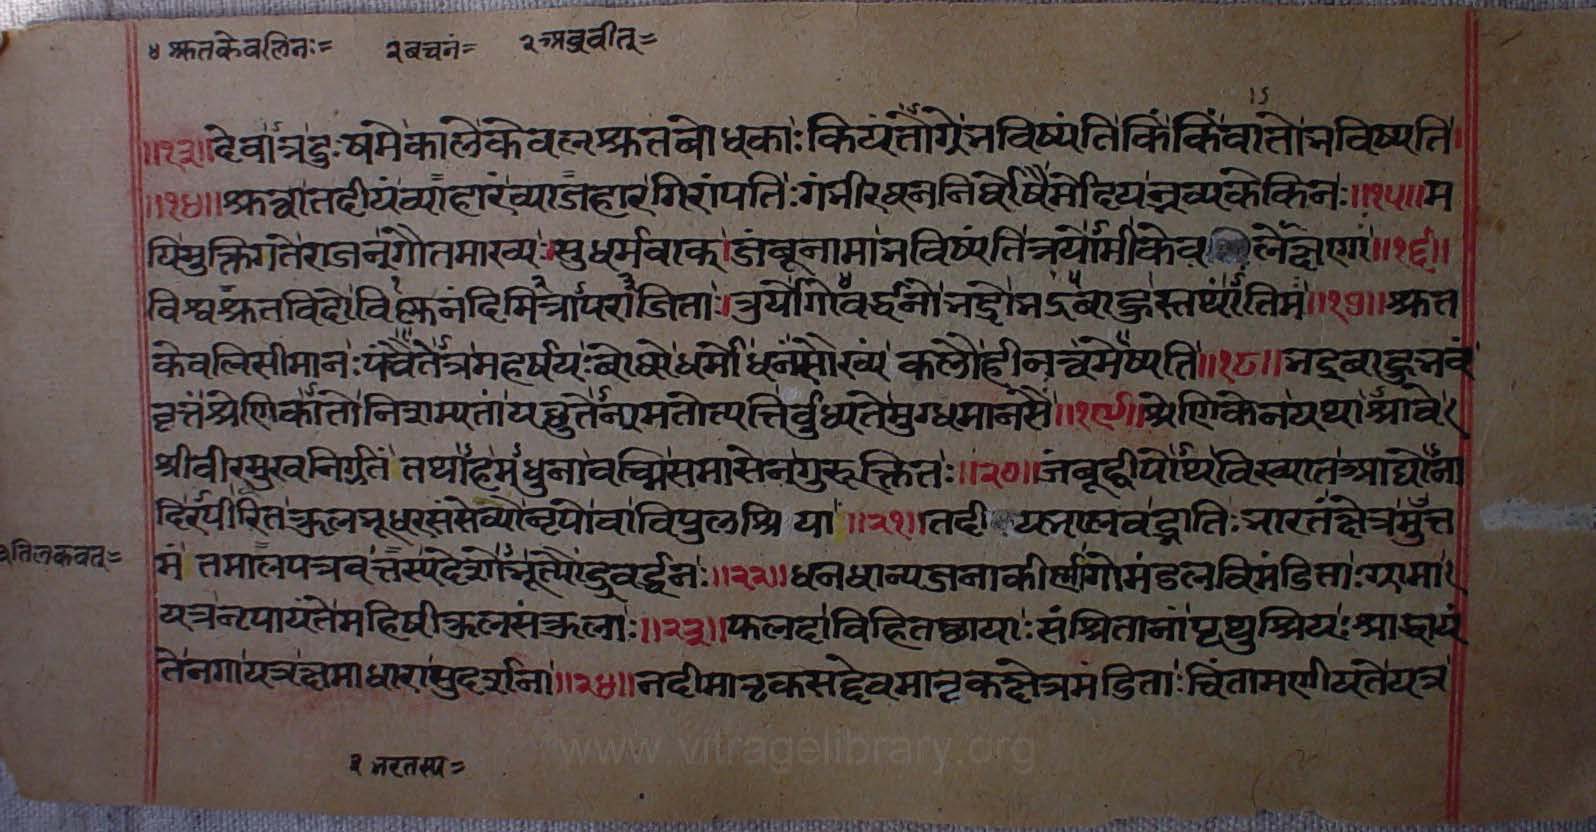 ४ श्रुतकेवलिनः= २ बचनं= २ अब्रुवीत्=
॥१३॥ देवात्र दुःषमे काले केवलश्रुतबोधकाः कियंतोग्रे भविष्यंति किं किं वातो भविष्यति
॥१४॥ श्रुत्वा तदीयं व्याहारं व्याजहार गिरांपतिः गंभीरध्वननिर्घोषैर्मोदयन् भव्यकेकिनः ॥१५॥ म
यि मुक्तिगते राजन् गौतमाख्यः सुधर्मवाक् जंबूनामा भविष्यंति त्रयोमी केव लेक्षणाः ॥१६॥
विश्वश्रुतविदो विष्णुनंदिमित्रापराजिताः तुर्यो गोवर्द्धनो भद्रो भद्रबाहुस्तथांतिमः ॥१७॥ श्रुत
केवलिसीमानः पंचैतेत्र महर्षयः बोधो धर्मो धनं सौख्यं कलौ हीनत्वमेष्यति ॥१८॥ भद्रबाहुभवं
वृत्तं श्रेणिकातो निशम्यतां यद्युतेन्यमतोत्पत्तिर्बुध्यते मुग्धमानसैः ॥१९॥ श्रेणिकेन यथाश्रावि
श्रीवीरमुखनिर्गतं तथाहमधुना वच्मि समासेन गुरूक्तितः ॥२०॥ जंबूद्वीपोथ विख्यात आद्योना
दिरपीरितः कुलभूधरसंसेव्यो नृपो वा विपुलश्रिया ॥२१॥ तदी यभालवद्भाति भारतं क्षेत्रमुत्त
मं तमालपत्रवत्तस्य देशोभूत्पौंड्रवर्द्धनः ॥२२॥ धनधान्यजनाकीर्णा गोमंडलविमंडिताः ग्रामा
२ तिलकवत्=
यत्र नृपायंते महिषीकुलसंकुलाः ॥२३॥ फलदा विहितछायाः संश्रितानां पृथुश्रियः श्राद्धायं
ते नगा यत्र क्षमाधाराः सुदर्शनाः ॥२४॥ नदीमातृकसद्देवमातृकक्षेत्रमंडिताः चिंतामणीयते यत्र
२ भरतस्य=
www.vitragelibrary.org